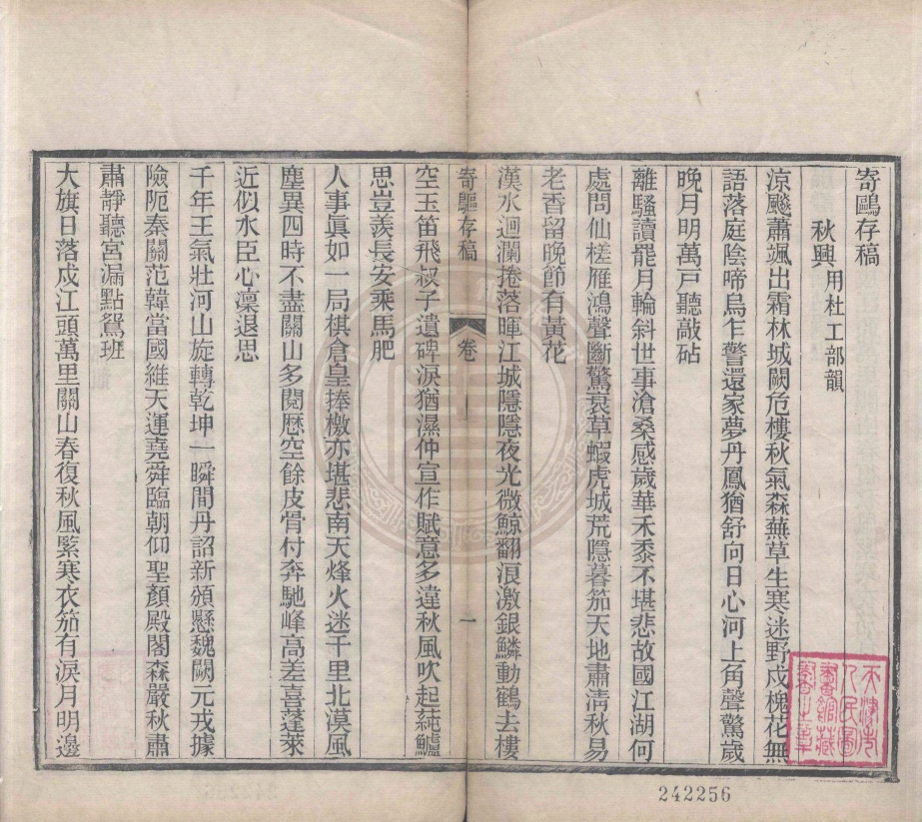 寄鷗存稿
秋興用杜工部韻
涼飈蕭颯出霜林城闕危樓秋氣森蕪草生寒迷野戍槐花無
語落庭陰啼烏乍警還家夢丹鳳猶舒向日心河上角聲驚歲
晚月明萬戸聽敲砧
離騷讀罷月輪斜世事滄桑感歲華禾黍不堪悲故國江湖何
處問仙槎雁鴻聲斷驚衰草蝦虎城荒隱暮笳天地肅淸秋易
老香留晚節有黃花
漢水迴瀾捲落暉江城隱隱夜光微鯨翻浪激銀鱗動鶴去樓
寄驅存稿 卷一 一
空玉笛飛叔子遺碑淚猶濕仲宣作賦意多違秋風吹起純鱸
思豈羨長安乘馬肥
人事眞如一局棋倉皇捧檄亦堪悲南天烽火迷千里北漠風
塵異四時不盡關山多閱歷空餘皮骨付奔馳峰高差喜蓬萊
近似水臣心凜退思
千年王氣壯河山旋轉乾坤一瞬間丹詔新頒懸魏闕元戎據
險阨秦關范韓當國維天運堯舜臨朝仰聖顏殿閣森嚴秋肅
肅靜聽宮漏點鴛班
大旗日落戍江頭萬里關山春復秋風緊寒衣笳有淚月明邊
天津市
人民圖
書館藏
書之章
242256